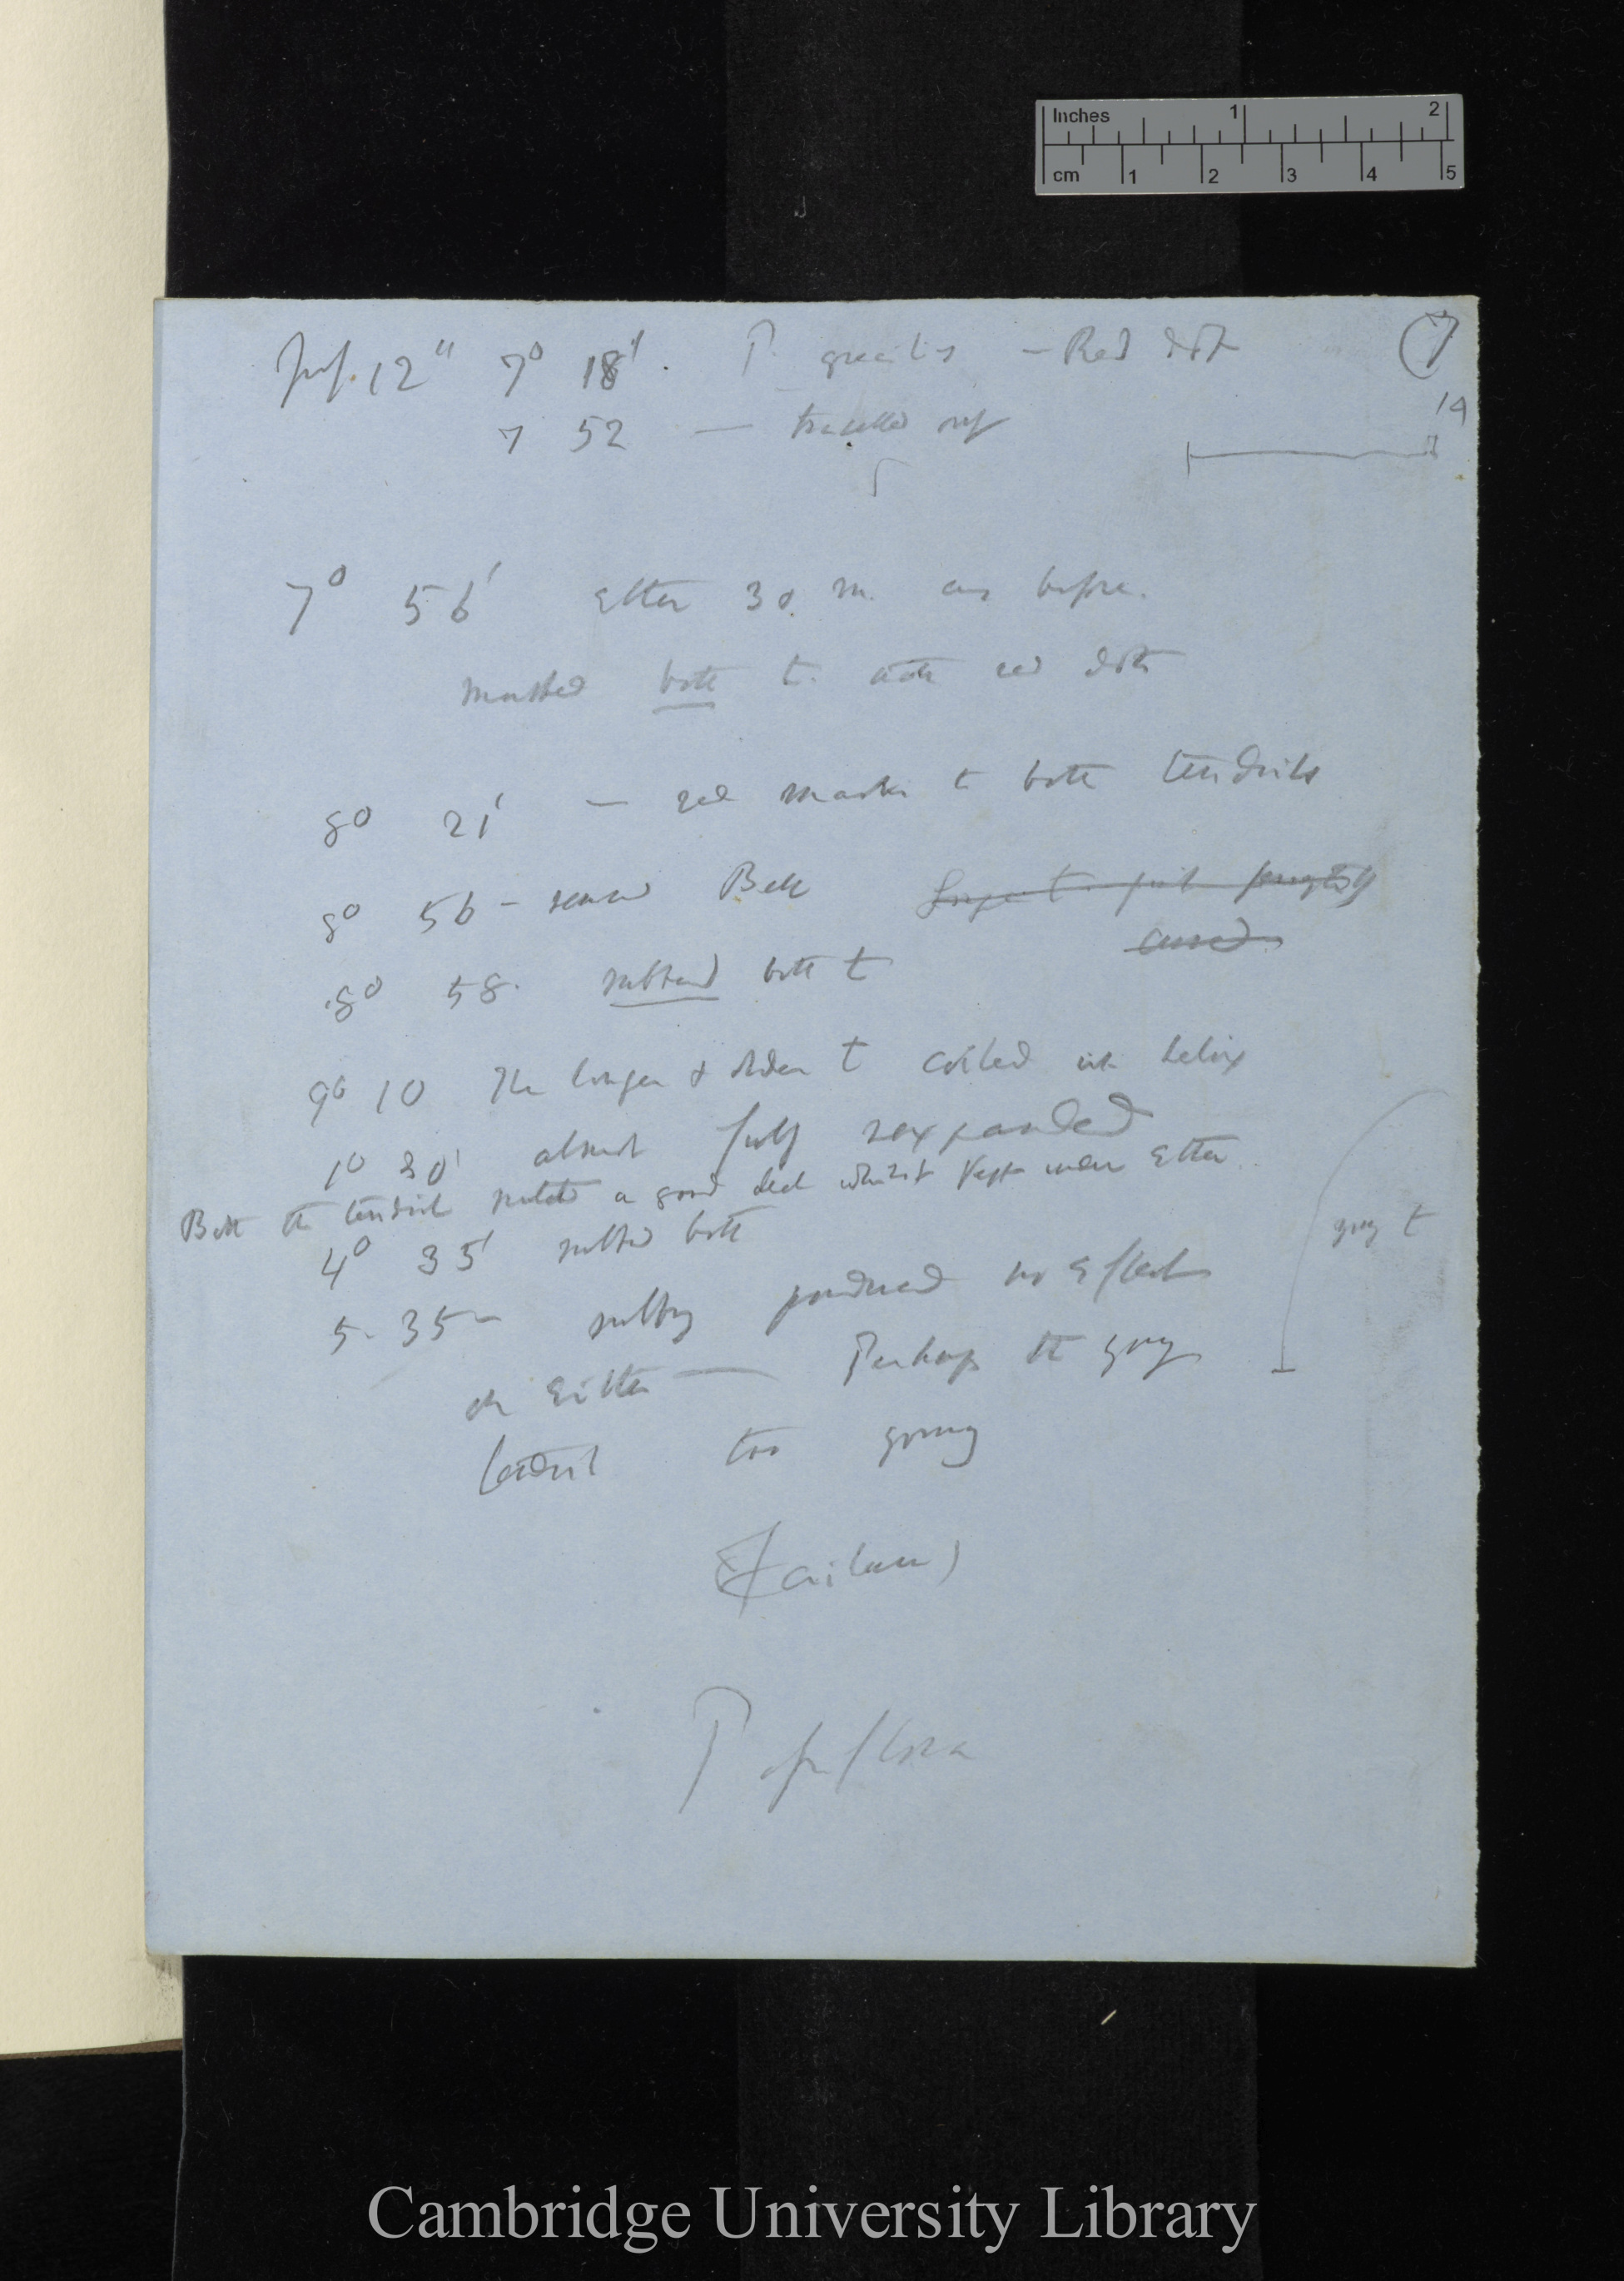 Inches 1 2
cm 1 2 3 4 5
7
July 12" 7° 18' . P. gracilis — Red dot
19
7 52 —
7° 56' Ether 30 m. as before.
Marked both t. with red dots
8° 21' — red marks to both tendrils
8° 56 — removed Bell
cured
8° 58. rubbed both t
9° 10 The longer & older t coiled in helix
1° 30' almost fully reexpanded
Both the tendrils a good deal whilst kept under Ether
4° 35' rubbed both
young t
5. 35 — rubbing produced no effect
on either — Perhaps the young
tendril too young
(Failure)
Passiflora
Cambridge University Library